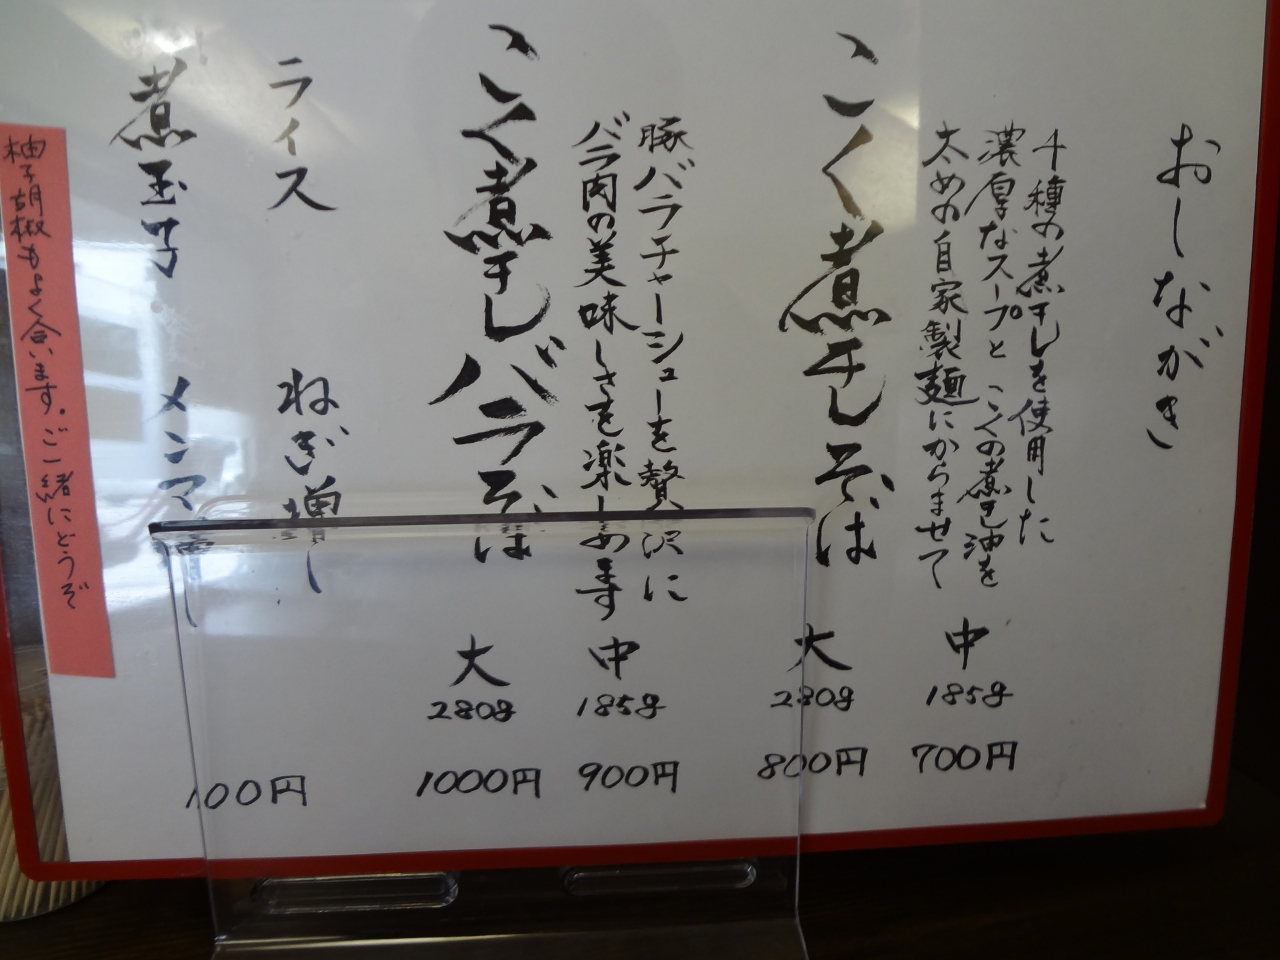 おしながき
十種の煮干しを使用した
濃厚なスープと こくの煮干し油を
太めの自家製麺にからませて
こく煮干しそば
中
185g
700円
大
280g
800円
豚バラチャーシューを贅沢に
バラ肉の美味しさを楽しめます
こく煮干しバラそば
中
185g
900円
大
280g
1000円
ライス ねぎ増し
煮玉子・メンマ増し
100円
柚子胡椒もよく合います。ご一緒にどうぞ